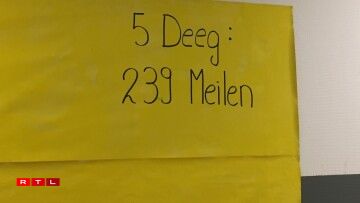 5 Deeg:
239 Meilen
RTL